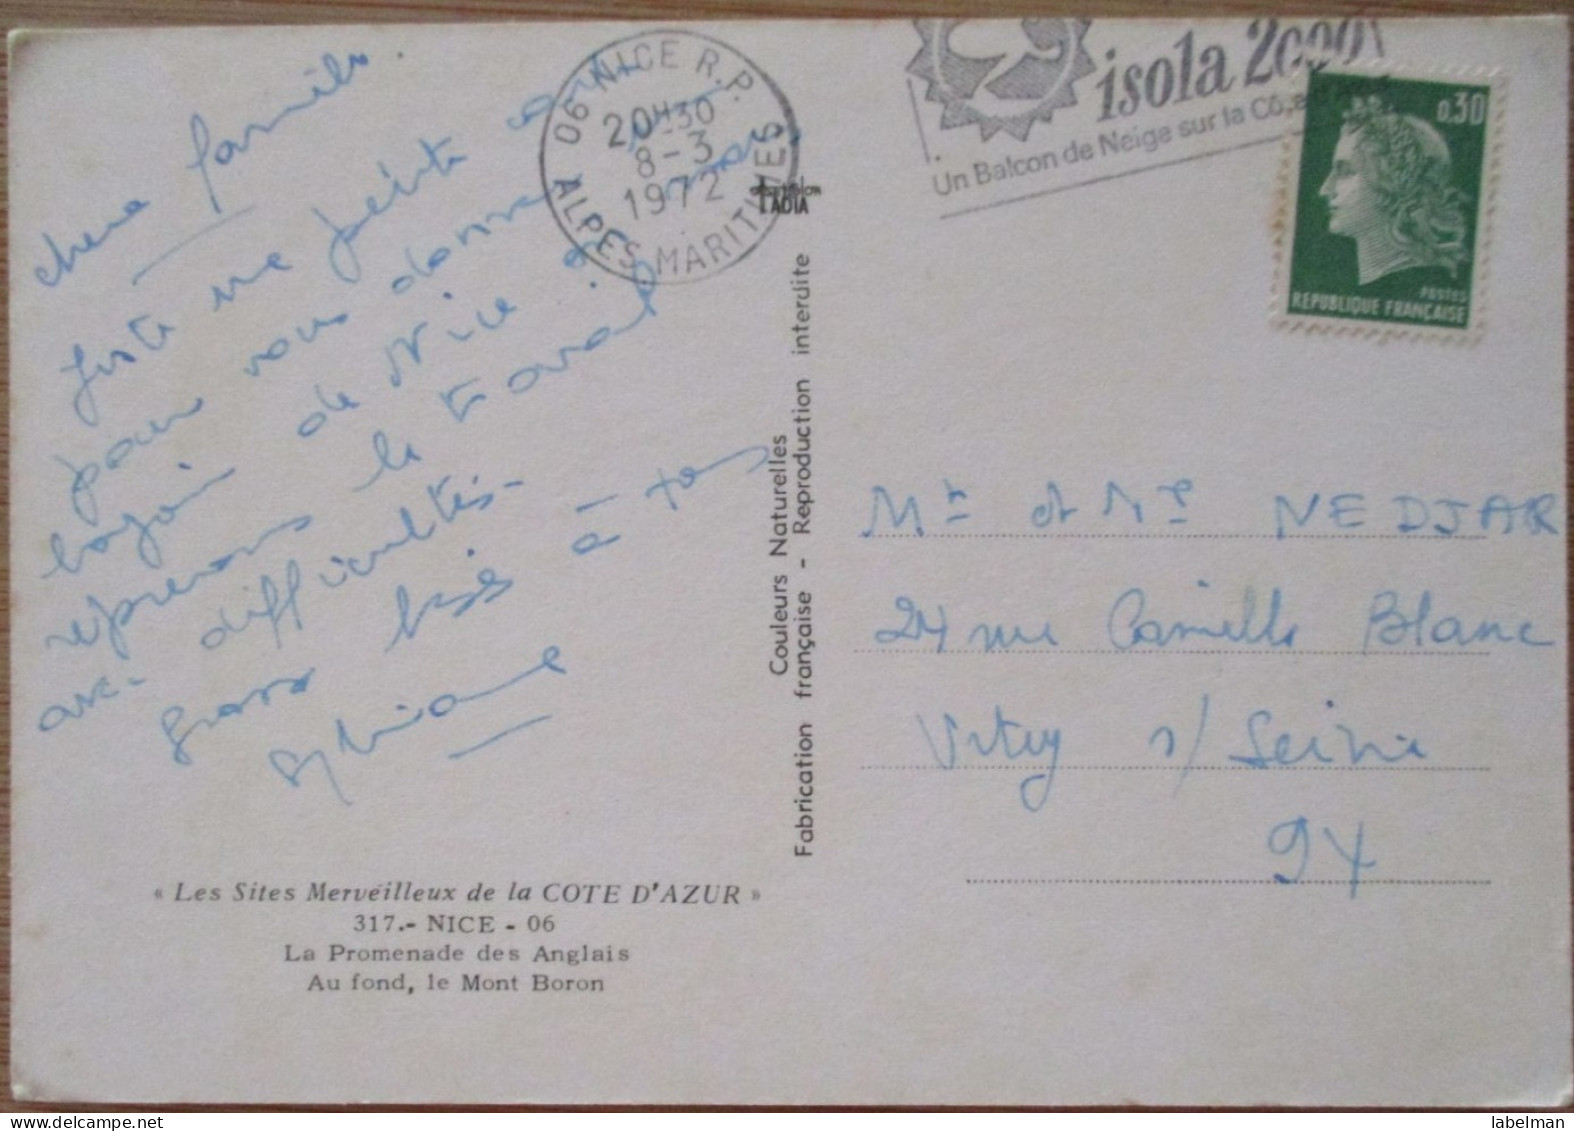 chère famille.
Juste une petite carte
pour vous donner
de Nice
reprenons le travail
avec difficultés-
Gross bisés à tous
Sylviane
« Les Sites Merveilleux de la COTE D'AZUR »
317.- NICE - 06
La Promenade des Anglais
Au fond, le Mont Boron
06 NICE R.P.
20H30
8-3
1972
ALPES MARITIMES
Couleurs Naturelles
Fabrication française - Reproduction interdite
isola 2000
Un Balcon de Neige sur la Côte
0,30
postes
REPUBLIQUE FRANÇAISE
Mr et Me NEDJAR
24 rue Camille Blanc
Vitry s/ Seine
94
labelman
labelman